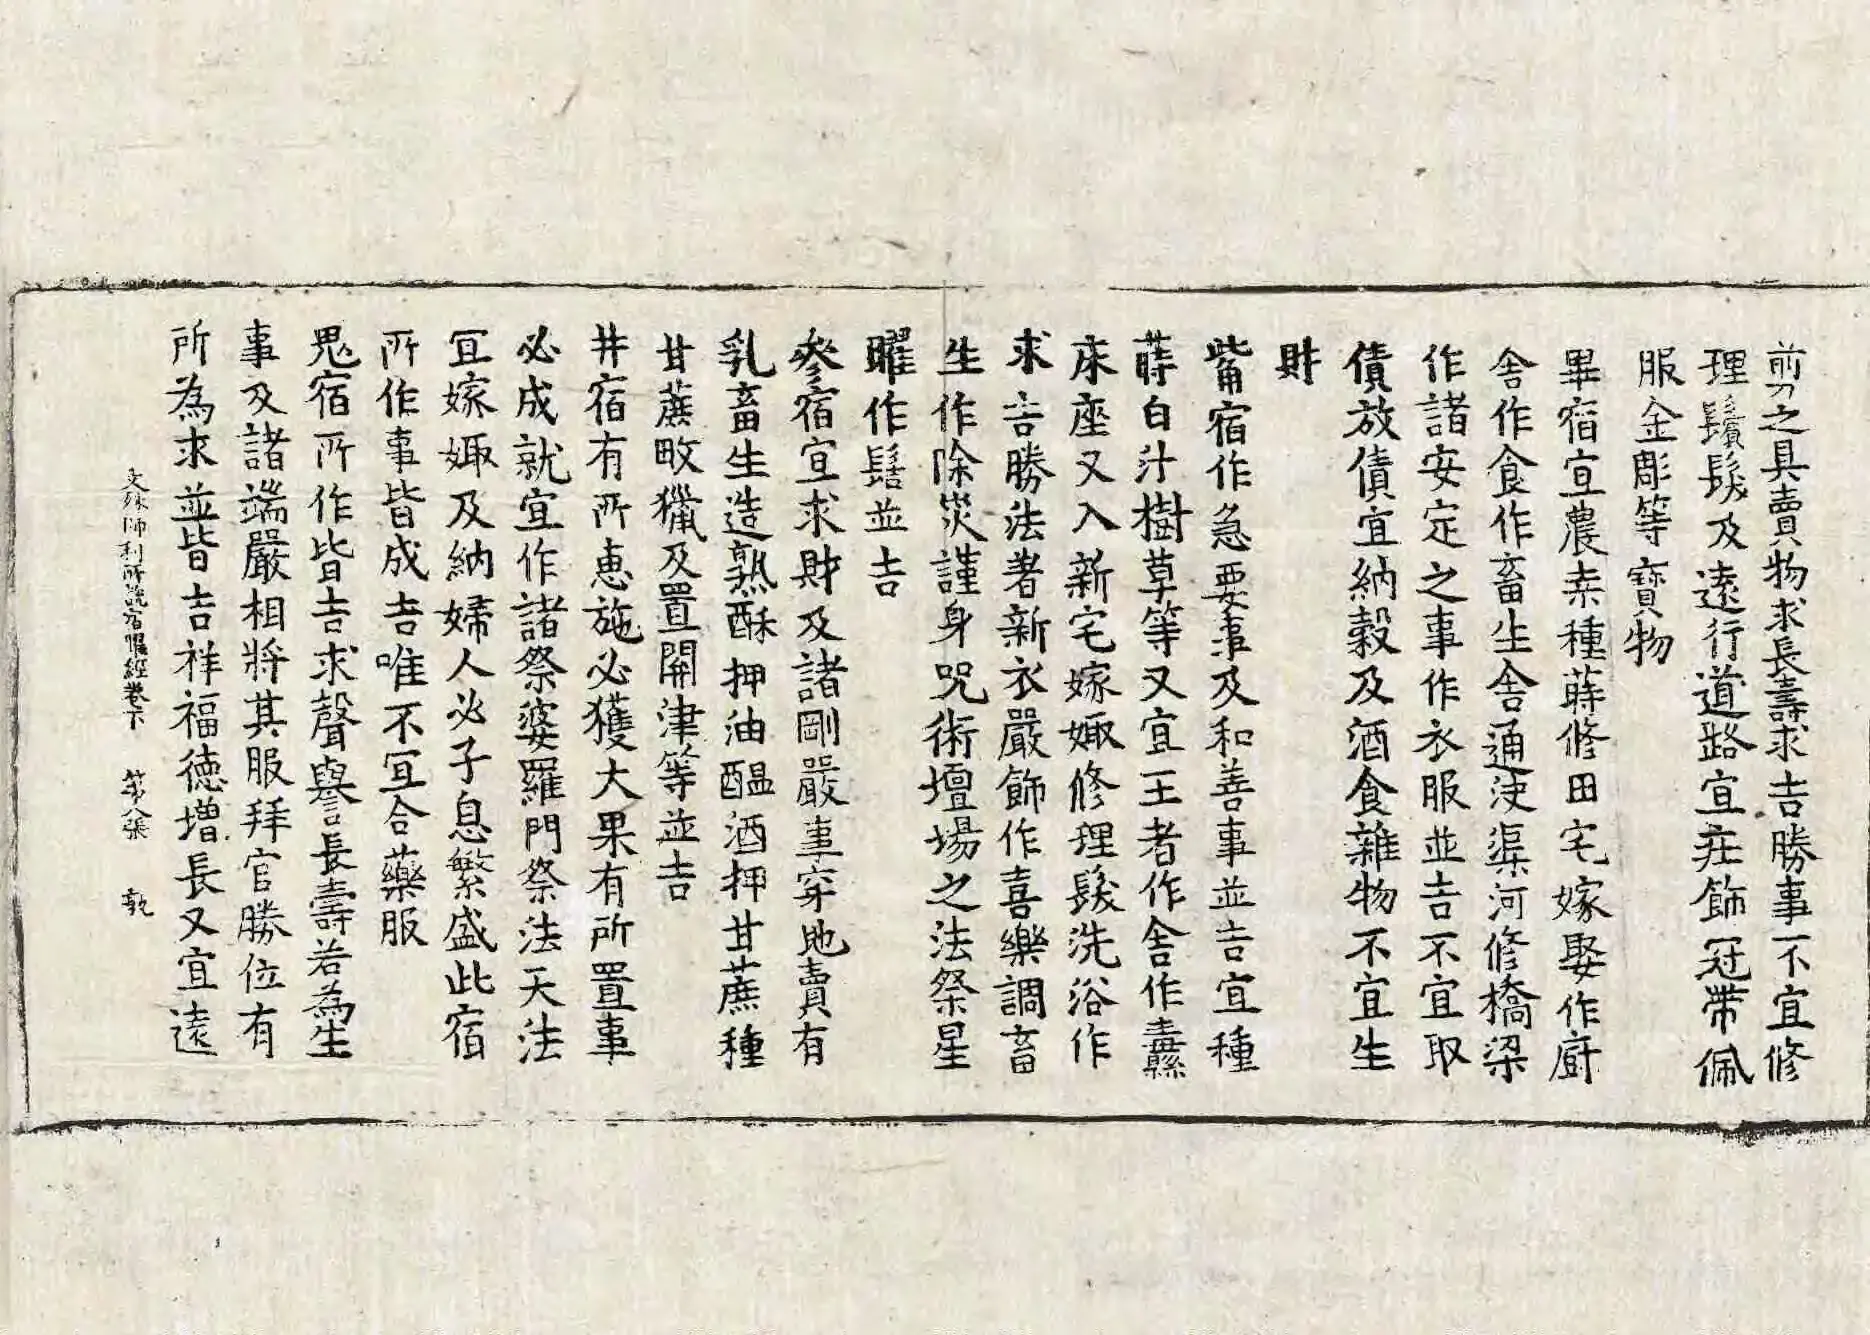 剪刀之具賣買物求長壽求吉勝事不宜修
理鬚髮及遠行道路宜莊飾冠帶佩
服金彫等寶物
畢宿宜農桒種蒔修田宅嫁娶作廚
舍作食作畜生舍通決渠河修橋梁
作諸安定之事作衣服並吉不宜取
債放債宜納穀及酒食雜物不宜生
財
觜宿作急要事及和善事並吉宜種
蒔白汁樹草等又宜王者作舍作纛
床座又入新宅嫁娵修理髮洗浴作
求吉勝法者新衣嚴飾作喜樂調畜
生作除災謹身咒術壇場之法祭星
曜作髻並吉
參宿宜求財及諸剛嚴事穿地賣有
乳畜生造熟酥押油醞酒押甘蔗種
甘蔗畋獵及置關津等並吉
井宿有所惠施必獲大果有所置事
必成就宜作諸祭婆羅門祭法天法
宜嫁娵及納婦人必子息繁盛此宿
所作事皆成吉唯不宜合藥服
鬼宿所作皆吉求聲譽長壽若為生
事及諸端嚴相將其服拜官勝位有
所為求並皆吉祥福德增長又宜遠
文殊師利所說宿曜經卷下 第八張 乾